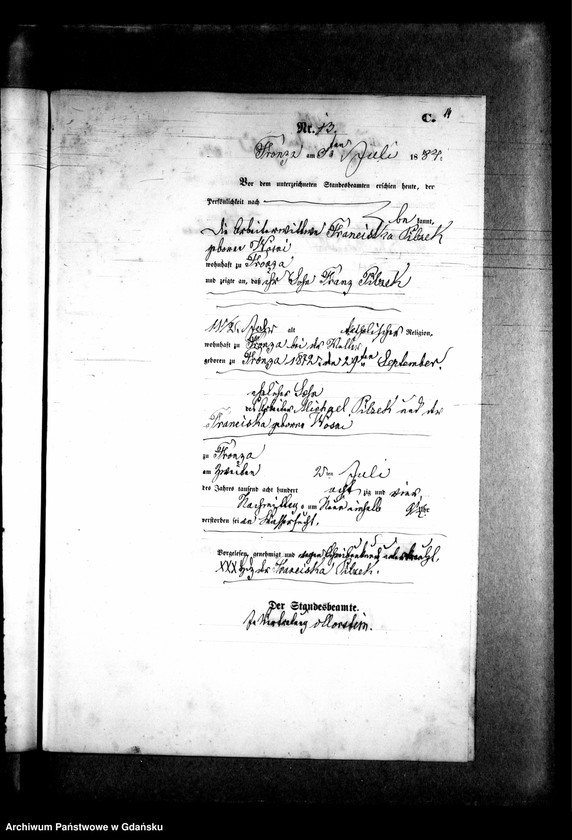 C.
Nr. 13.
Fronza am 3ten Juli 1884.
Vor dem unterzeichneten Standesbeamten erschien heute, der
Persönlichkeit nach
be kannt,
die Arbeiterwittwe Franciska Pilzek
geborne Kosni
wohnhaft zu Fronza
und zeigte an, daß ihr Sohn Franz Pilzek
11 1/2 Jahr alt katholischer Religion,
wohnhaft zu Fronza bei der
geboren zu Fronza 1872 den 29ten September,
ehelicher Sohn
des Arbeiter Michael Pilzek und der
Franciska geborne Kosni
zu Fronza
am zweiten 2ten Juli
des Jahres tausend acht hundert acht zig und vier,
Nachmittags um Uhr
verstorben sei an Wassersucht.
Vorgelesen, genehmigt und wegen
XXX der Franciska Pilzek.
Der Standesbeamte.
In Vertretung
Archiwum Państwowe w Gdańsku